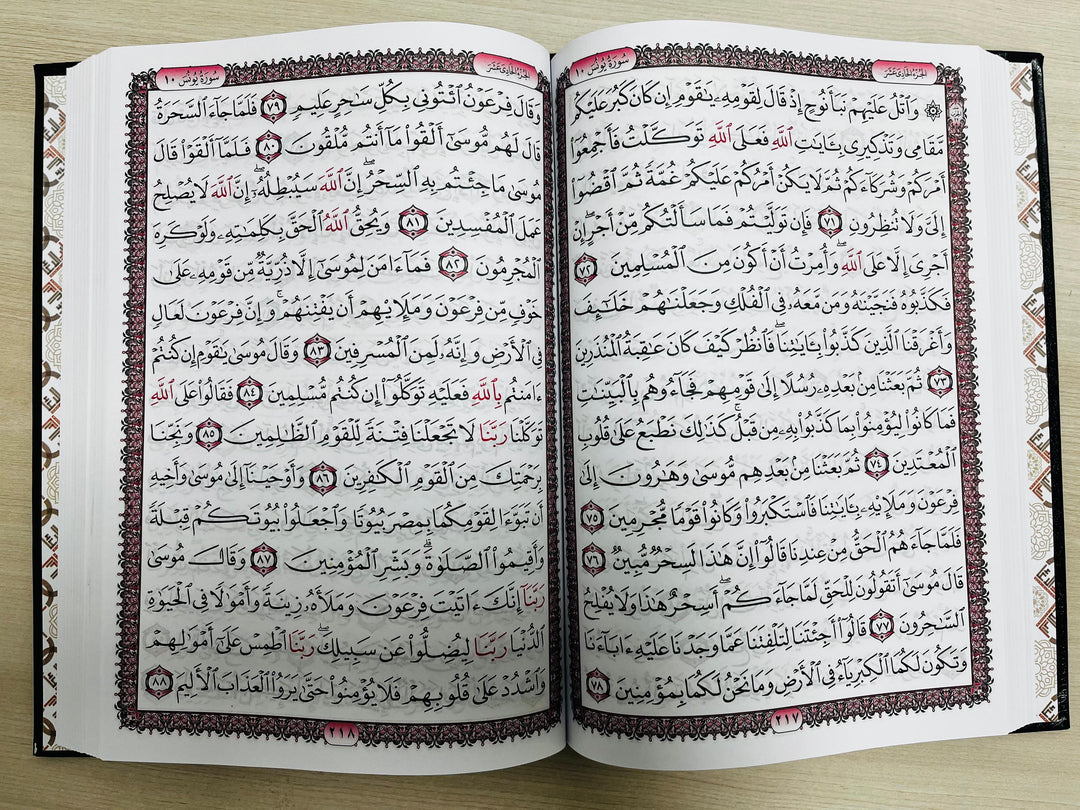 سُورَةُ يُونُس ١٠
الجُزْءُ الحَادِي عَشَر
۞ وَٱتْلُ عَلَيْهِمْ نَبَأَ نُوحٍ إِذْ قَالَ لِقَوْمِهِۦ يَٰقَوْمِ إِن كَانَ كَبُرَ عَلَيْكُم
مَّقَامِى وَتَذْكِيرِى بِـَٔايَٰتِ ٱللَّهِ فَعَلَى ٱللَّهِ تَوَكَّلْتُ فَأَجْمِعُوٓا۟
أَمْرَكُمْ وَشُرَكَآءَكُمْ ثُمَّ لَا يَكُنْ أَمْرُكُمْ عَلَيْكُمْ غُمَّةً ثُمَّ ٱقْضُوٓا۟
إِلَىَّ وَلَا تُنظِرُونِ ٧١ فَإِن تَوَلَّيْتُمْ فَمَا سَأَلْتُكُم مِّنْ أَجْرٍ إِنْ
أَجْرِىَ إِلَّا عَلَى ٱللَّهِ ۖ وَأُمِرْتُ أَنْ أَكُونَ مِنَ ٱلْمُسْلِمِينَ ٧٢
فَكَذَّبُوهُ فَنَجَّيْنَٰهُ وَمَن مَّعَهُۥ فِى ٱلْفُلْكِ وَجَعَلْنَٰهُمْ خَلَٰٓئِفَ
وَأَغْرَقْنَا ٱلَّذِينَ كَذَّبُوا۟ بِـَٔايَٰتِنَا ۖ فَٱنظُرْ كَيْفَ كَانَ عَٰقِبَةُ ٱلْمُنذَرِينَ
٧٣ ثُمَّ بَعَثْنَا مِنۢ بَعْدِهِۦ رُسُلًا إِلَىٰ قَوْمِهِمْ فَجَآءُوهُم بِٱلْبَيِّنَٰتِ
فَمَا كَانُوا۟ لِيُؤْمِنُوا۟ بِمَا كَذَّبُوا۟ بِهِۦ مِن قَبْلُ ۚ كَذَٰلِكَ نَطْبَعُ عَلَىٰ قُلُوبِ
ٱلْمُعْتَدِينَ ٧٤ ثُمَّ بَعَثْنَا مِنۢ بَعْدِهِم مُّوسَىٰ وَهَٰرُونَ إِلَىٰ
فِرْعَوْنَ وَمَلَإِي۟هِۦ بِـَٔايَٰتِنَا فَٱسْتَكْبَرُوا۟ وَكَانُوا۟ قَوْمًا مُّجْرِمِينَ ٧٥
فَلَمَّا جَآءَهُمُ ٱلْحَقُّ مِنْ عِندِنَا قَالُوٓا۟ إِنَّ هَٰذَا لَسِحْرٌ مُّبِينٌ ٧٦
قَالَ مُوسَىٰٓ أَتَقُولُونَ لِلْحَقِّ لَمَّا جَآءَكُمْ ۖ أَسِحْرٌ هَٰذَا وَلَا يُفْلِحُ
ٱلسَّٰحِرُونَ ٧٧ قَالُوٓا۟ أَجِئْتَنَا لِتَلْفِتَنَا عَمَّا وَجَدْنَا عَلَيْهِ ءَابَآءَنَا
وَتَكُونَ لَكُمَا ٱلْكِبْرِيَآءُ فِى ٱلْأَرْضِ وَمَا نَحْنُ لَكُمَا بِمُؤْمِنِينَ ٧٨
٢١٧
الجُزْءُ الحَادِي عَشَر
سُورَةُ يُونُس ١٠
وَقَالَ فِرْعَوْنُ ٱئْتُونِى بِكُلِّ سَٰحِرٍ عَلِيمٍ ٧٩ فَلَمَّا جَآءَ ٱلسَّحَرَةُ
قَالَ لَهُم مُّوسَىٰٓ أَلْقُوا۟ مَآ أَنتُم مُّلْقُونَ ٨٠ فَلَمَّآ أَلْقَوْا۟ قَالَ
مُوسَىٰ مَا جِئْتُم بِهِ ٱلسِّحْرُ ۖ إِنَّ ٱللَّهَ سَيُبْطِلُهُۥٓ ۖ إِنَّ ٱللَّهَ لَا يُصْلِحُ
عَمَلَ ٱلْمُفْسِدِينَ ٨١ وَيُحِقُّ ٱللَّهُ ٱلْحَقَّ بِكَلِمَٰتِهِۦ وَلَوْ كَرِهَ
ٱلْمُجْرِمُونَ ٨٢ فَمَآ ءَامَنَ لِمُوسَىٰٓ إِلَّا ذُرِّيَّةٌ مِّن قَوْمِهِۦ عَلَىٰ
خَوْفٍ مِّن فِرْعَوْنَ وَمَلَإِي۟هِمْ أَن يَفْتِنَهُمْ ۚ وَإِنَّ فِرْعَوْنَ لَعَالٍ
فِى ٱلْأَرْضِ وَإِنَّهُۥ لَمِنَ ٱلْمُسْرِفِينَ ٨٣ وَقَالَ مُوسَىٰ يَٰقَوْمِ إِن كُنتُمْ
ءَامَنتُم بِٱللَّهِ فَعَلَيْهِ تَوَكَّلُوٓا۟ إِن كُنتُم مُّسْلِمِينَ ٨٤ فَقَالُوا۟ عَلَى ٱللَّهِ
تَوَكَّلْنَا رَبَّنَا لَا تَجْعَلْنَا فِتْنَةً لِّلْقَوْمِ ٱلظَّٰلِمِينَ ٨٥ وَنَجِّنَا
بِرَحْمَتِكَ مِنَ ٱلْقَوْمِ ٱلْكَٰفِرِينَ ٨٦ وَأَوْحَيْنَآ إِلَىٰ مُوسَىٰ وَأَخِيهِ
أَن تَبَوَّءَا لِقَوْمِكُمَا بِمِصْرَ بُيُوتًا وَٱجْعَلُوا۟ بُيُوتَكُمْ قِبْلَةً
وَأَقِيمُوا۟ ٱلصَّلَوٰةَ ۗ وَبَشِّرِ ٱلْمُؤْمِنِينَ ٨٧ وَقَالَ مُوسَىٰ
رَبَّنَآ إِنَّكَ ءَاتَيْتَ فِرْعَوْنَ وَمَلَأَهُۥ زِينَةً وَأَمْوَٰلًا فِى ٱلْحَيَوٰةِ
ٱلدُّنْيَا رَبَّنَا لِيُضِلُّوا۟ عَن سَبِيلِكَ ۖ رَبَّنَا ٱطْمِسْ عَلَىٰٓ أَمْوَٰلِهِمْ
وَٱشْدُدْ عَلَىٰ قُلُوبِهِمْ فَلَا يُؤْمِنُوا۟ حَتَّىٰ يَرَوُا۟ ٱلْعَذَابَ ٱلْأَلِيمَ ٨٨
٢١٨